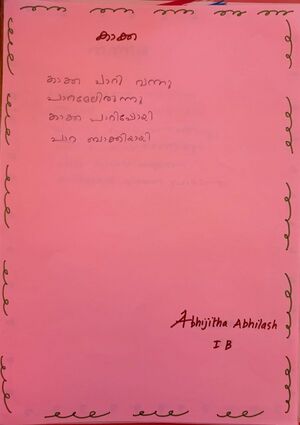 കാക്ക
കാക്ക പാറി വന്നു
പാറമേലിരുന്നു
കാക്ക പാറിപോയി
പാറ ബാക്കിയായി
Abhijitha Abhilash
I B